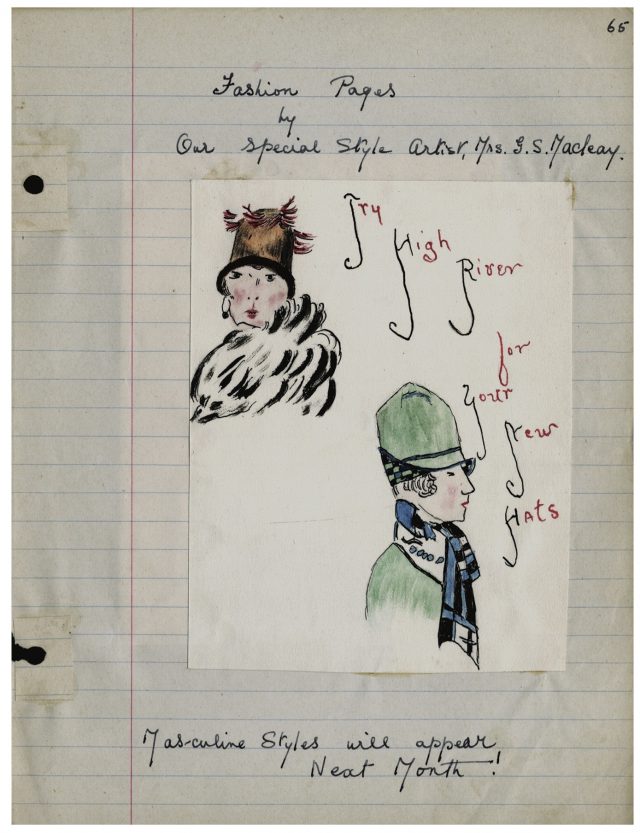 65
Fashion Pages
by
Our Special Style Artist, Mrs. G. S. Macleay.
Try
High
River
for
Your
New
Hats
Masculine Styles will appear
Next Month!